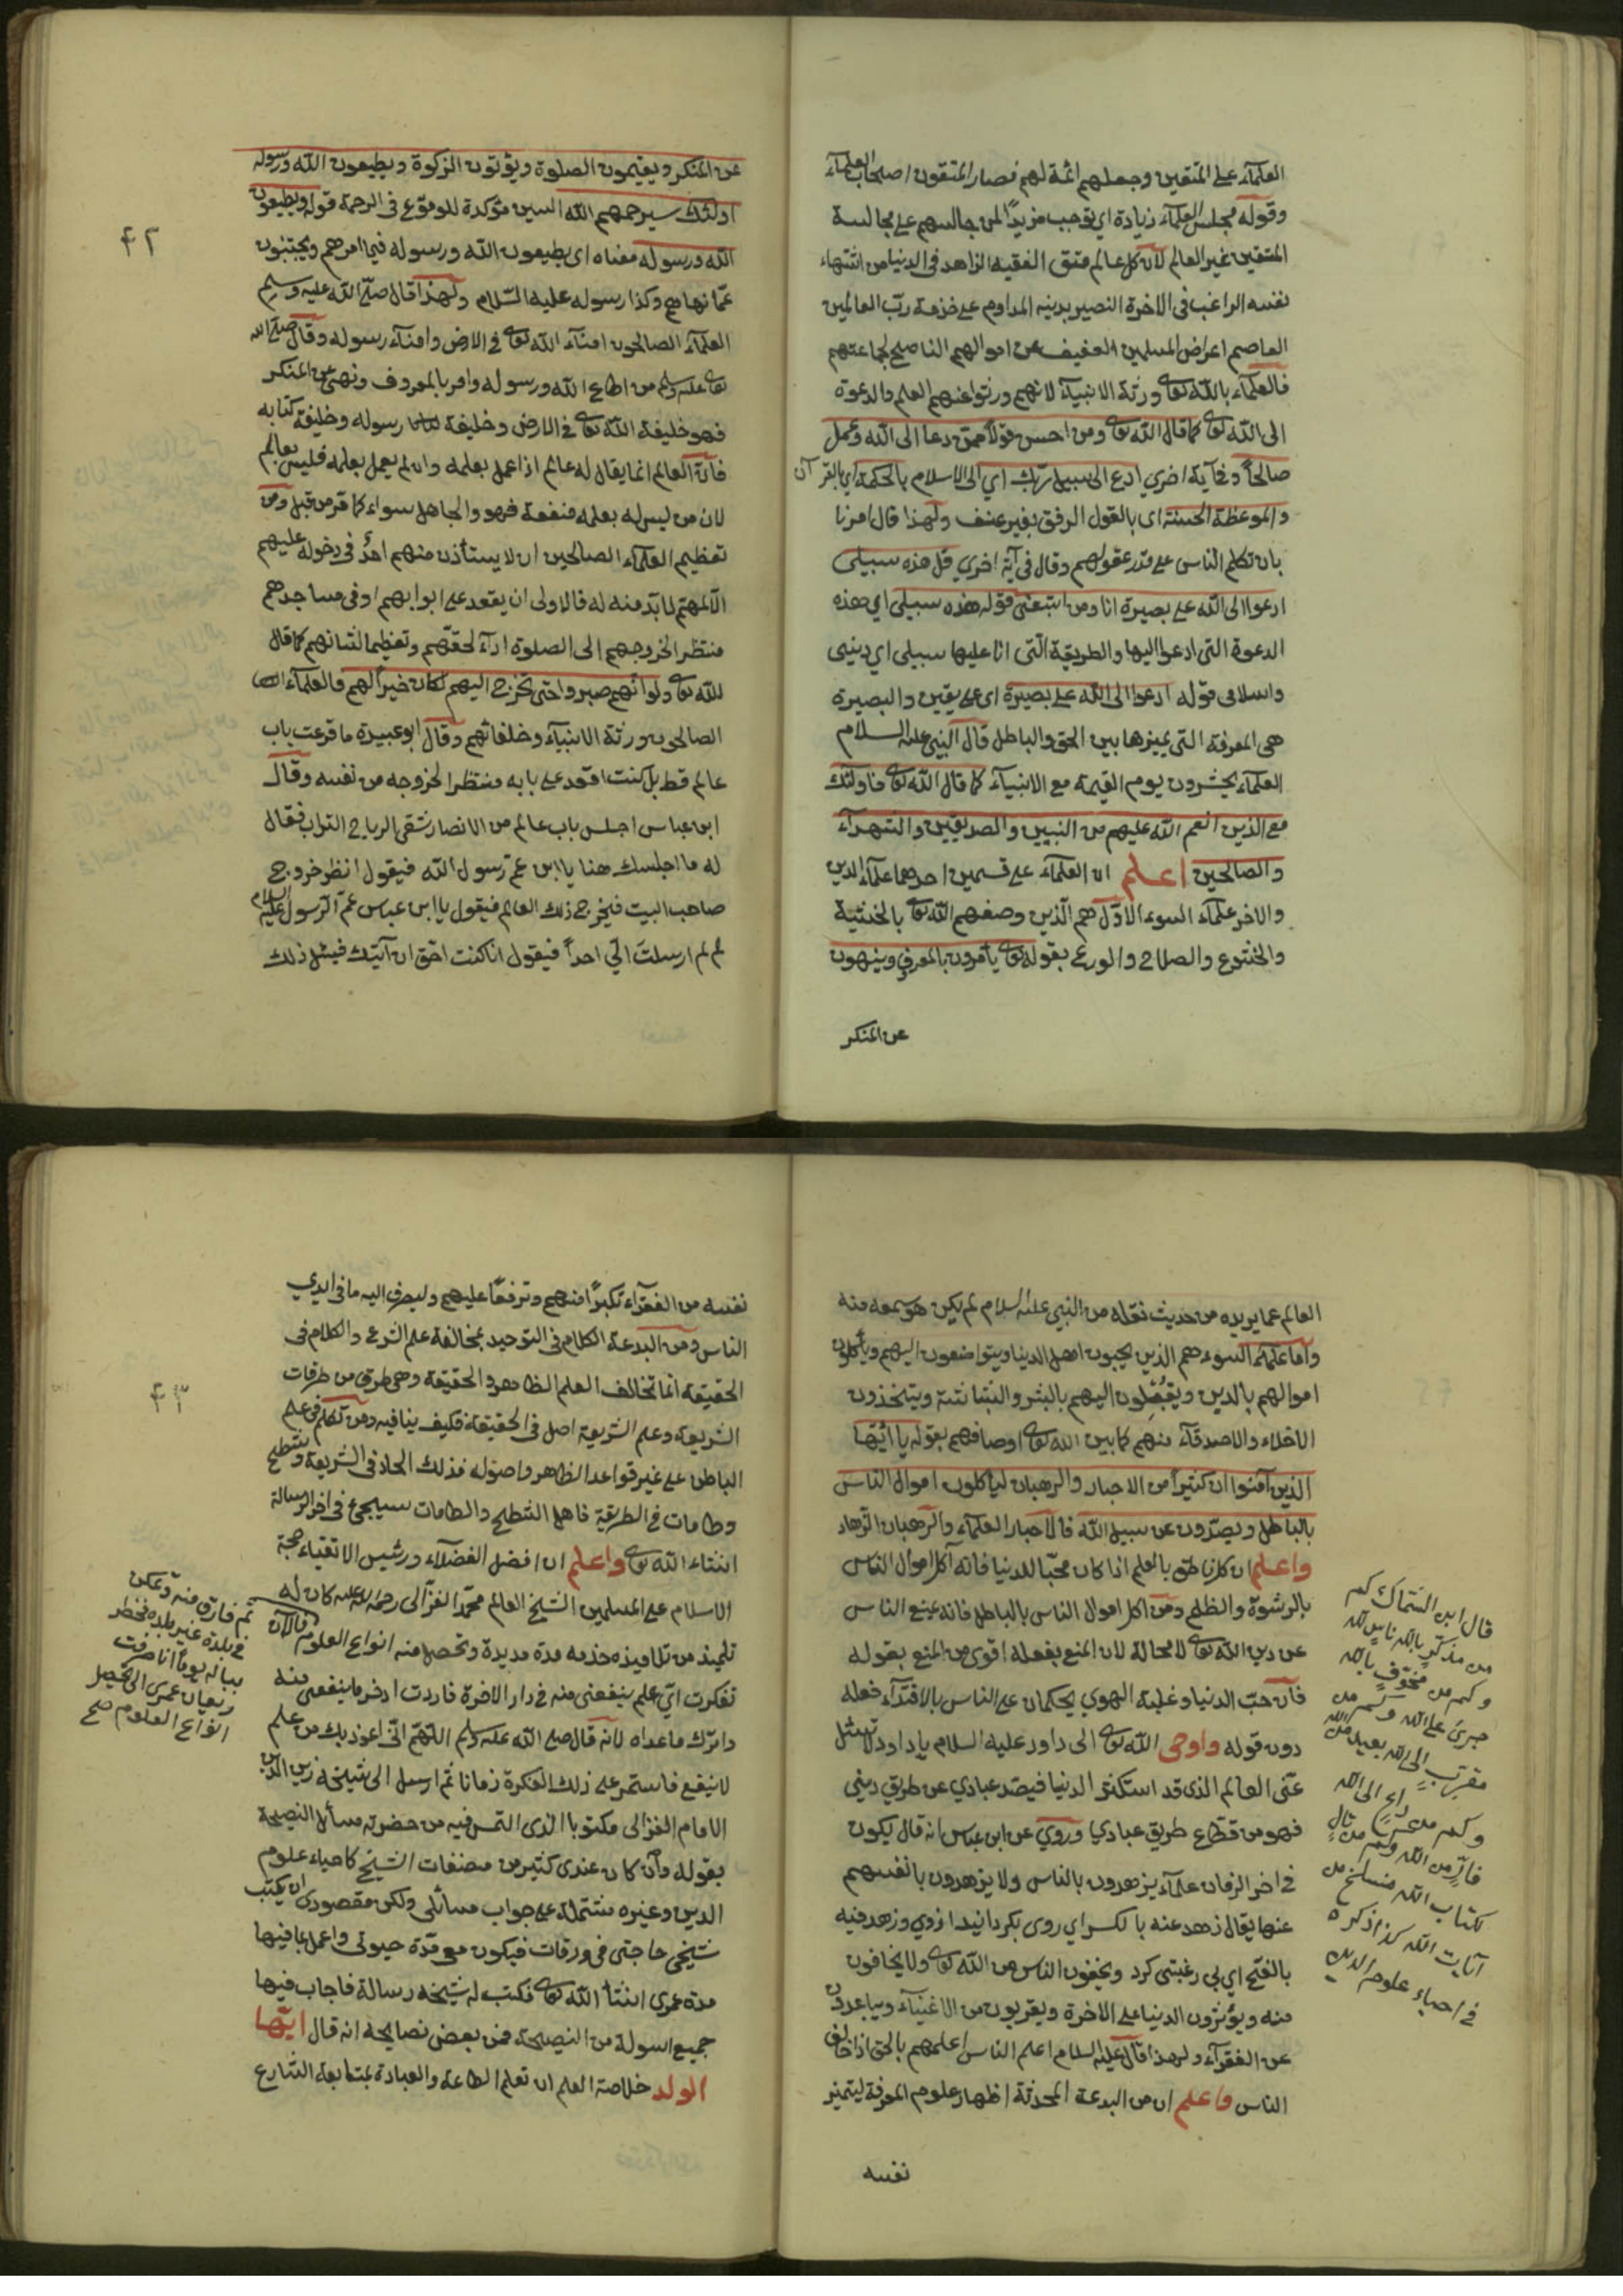 العلمآء على المتقين وجعلهم ائمة لهم فصار المتقون اصحاب العلمآء
وقوله مجلس العلمآء زيادة اي توجب مزيدًا لمن جالسهم على مجالسة
المتقين غير العالم لان كل عالم متق الفقيه الزاهد فى الدنيا من
نفسه الراغب فى الاخرة البصير بدينه المداوم على خدمة ربّ العالمين
العاصم اعراض المسلمين العفيف عن اموالهم الناصح لجماعتهم
فالعلمآء بالله تعالى ورثة الانبيآء لانهم ورثوا عنهم العلم والدعوة
الى الله تعالى كما قال الله تعالى ومن احسن قولا ممن دعا الى الله وعمل
صالحًا وفى آية اخرى ادع الى سبيل ربك اي الى الاسلام بالحكمة اي بالقرآن
والموعظة الحسنة اى بالقول الرفق بغير عنف ولهذا قال امرنا
بان نكلم الناس على قدر عقولهم وقال فى آية اخرى قل هذه سبيلى
ادعوا الى الله على بصيرة انا ومن اتبعنى قوله هذه سبيلى اي هذه
الدعوة التى ادعوا اليها والطريقة التى انا عليها سبيلى اي دينى
واسلامى قوله ادعوا الى الله على بصيرة اى على يقين والبصيرة
هى المعرفة التى يميز بها بين الحق والباطل قال النبى عليه السلام
العلمآء يحشرون يوم القيمة مع الانبيآء كما قال الله تعالى فاولئك
مع الذين انعم الله عليهم من النبيين والصديقين والشهدآء
والصالحين اعلم ان العلمآء على قسمين احدهما علمآء الدين
والاخر علمآء السوء الاوّل هم الّذين وصفهم الله تعالى بالخشية
والخشوع والصلاح والورع بقوله تعالى يأمرون بالمعروف وينهون
عن المنكر
عن المنكر ويقيمون الصلوة ويؤتون الزكوة ويطيعون الله ورسوله
اولئك سيرحمهم الله السين مؤكدة للوقوع فى الرحمة قوله ويطيعون
الله ورسوله معناه اى يطيعون الله ورسوله فيما امرهم ويجتنبون
عمّا نهاهم وكذا رسوله عليه السّلام ولهذا قال صلّى الله عليه وسلم
العلمآء الصالحون امنآء الله تعالى فى الارض وامنآء رسوله وقال صلى الله
تعالى عليه وسلم من اطاع الله ورسوله وامر بالمعروف ونهى عن المنكر
فهو خليفة الله تعالى فى الارض وخليفة رسوله وخليفة كتابه
فانّ العالم انما يقال له عالم اذا عمل بعلمه وان لم يعمل بعلمه فليس بعالم
لان من ليس له بعلمه منفعة فهو والجاهل سواء كما مر من قبل ومن
تعظيم العلمآء الصالحين ان لا يستأذن منهم احدٌ فى دخوله عليهم
الّا لمهتم لا بدّ منه له فالاولى ان يقعد على ابوابهم او فى مساجدهم
منتظرا لخروجهم الى الصلوة ادآء لحقهم وتعظيما لشانهم كما قال
الله تعالى ولو انهم صبروا حتى تخرج اليهم لكان خيرا لهم والعلمآء
الصالحون ورثة الانبيآء وخلفائهم وقال ابو عبيدة ما قرعت باب
عالم قط بل كنت اقعد على بابه منتظرا لخروجه من نفسه وقال
ابن عباس اجلس باب عالم من الانصار تسقى الرياح التراب فقال
له ما اجلسك هنا يا ابن عم رسول الله فيقول انظر خروج
صاحب البيت فيخرج ذلك العالم فيقول يا ابن عباس عم الرسول عليه السلام
لم لم ارسلتَ الىّ احداً فيقول انا كنت احق ان آتيك فيسئل ذلك
٤٢
العالم عما يريده من حديث نقله من النبى عليه السلام لم يكن هو سمعه منه
واما علمآء السوء هم الذين يحبون اهل الدنيا ويتواضعون اليهم ويأكلون
اموالهم بالدين ويقبلون اليهم بالبشر والبشاشة ويتخذون
الاخلاء والاصدقآء منهم كما بين الله تعالى اوصافهم بقوله يا ائيها
الذين آمنوا ان كثيراً من الاحبار والرهبان لياكلون اموال الناس
بالباطل ويصدّون عن سبيل الله فالاحبار العلمآء والرهبان الزهاد
واعلم ان كل ناطق بالعلم اذا كان محبّا للدنيا فانه آكل اموال الناس
بالرشوة والظلم ومن اكل اموال الناس بالباطل فانه يمنع الناس
عن دين الله تعالى لا محالة لان المنع بفعله اقوى من المنع بقوله
فان حبّ الدنيا وغلبة الهوي يحكمان على الناس بالاقتدآء فعله
دون قوله واوحى الله تعالى الى داود عليه السلام يا داود لا تسئل
عنّى العالم الذى قد استكثر الدنيا فيصد عبادي عن طريق دينى
فهو من قطاع طريق عبادي وروي عن ابن عباس انه قال يكون
فى اخر الزمان علمآء يزهدون بالناس ولا يزهدون بانفسهم
عنها يقال زهد عنه بالكسر اي روى بكردانيد ازوي وزهد فيه
بالفتح اي بى رغبتى كرد ويخوفون الناس من الله تعالى ولا يخافون
منه ويؤثرون الدنيا على الاخرة ويقربون من الاغنيآء ويباعدون
عن الفقرآء ولهذا قال عليه السلام اعلم الناس اعلمهم بالحق اذا خالف
الناس واعلم ان من البدعة المحدثة اظهار علوم المعرفة ليتميز
نفسه
قال ابن السّماك كم
من مذكّرٍ بالله ناسٍ لله
وكم من مخوّفٍ بالله
جرئ على الله وكم من
مقرّبٍ الى الله بعيد من الله
وكم من داعٍ الى الله
فارّ من الله وكم من تالٍ
لكتاب الله منسلخ من
آيات الله كذا ذكره
فى احياء علوم الدين
نفسه من الفقرآء تكبّراً منهم وترفعًا عليهم وليصرف اليه ما فى ايدي
الناس ومن البدعة الكلام فى التوحيد بمخالفة علم الشرع والكلام فى
الحقيقة انما تخالف العلم الظاهر والحقيقة وهى طرق من طرقات
الشريعة وعلم الشريعة اصل فى الحقيقة فكيف ينافيه ومن تكلم فى علم
الباطن على غير قواعد الظاهر واصوله فذلك الحاد فى الشريعة وشطح
وطامات فى الطريقة فاهل الشطح والطامات سيجئ فى اخر الرسالة
انشاء الله تعالى واعلم ان افضل الفضلآء ورئيس الاتقياء حجة
الاسلام على المسلمين الشيخ العالم محمّد الغزّالى رحمة الله عليه كان له
تلميذ من تلاميذه خدمه مدة مديدة وتحصل منه انواع العلوم فالآن
تفكرت ايّ علم ينفعنى منه فى دار الاخرة فاردت ادخر ما ينفعنى منه
واترك ما عداه لانه قال صلى الله عليه وسلم اللهمّ انّى اعوذ بك من علم
لا ينفع فاستمر على ذلك الفكرة زمانا ثم ارسل الى شيخه زين الدين
الامام الغزالى مكتوبا الذى التمس فيه من حضرته مسأل النصيحة
بقوله وان كان عندى كثير من مصنفات الشيخ كاحياء علوم
الدين وغيره مشتملة على جواب مسائلى ولكن مقصودى ان يكتب
شيخى حاجتى فى ورقات فيكون معى مدة حيوتى واعمل بما فيها
مدة عمرى انشاء الله تعالى فكتب له شيخه رسالة فاجاب فيها
جميع اسولة من النصيحة فمن بعض نصايحه انه قال ايّها
الولد خلاصة العلم ان تعلم الطاعة والعبادة بمتابعة الشارع
ثم فارق منه وتمكن
فى بلدة غير بلده فخطر
بباله يوما انا صرفت
ريعان عمرى الى تحصيل
انواع العلوم صح
٤٣